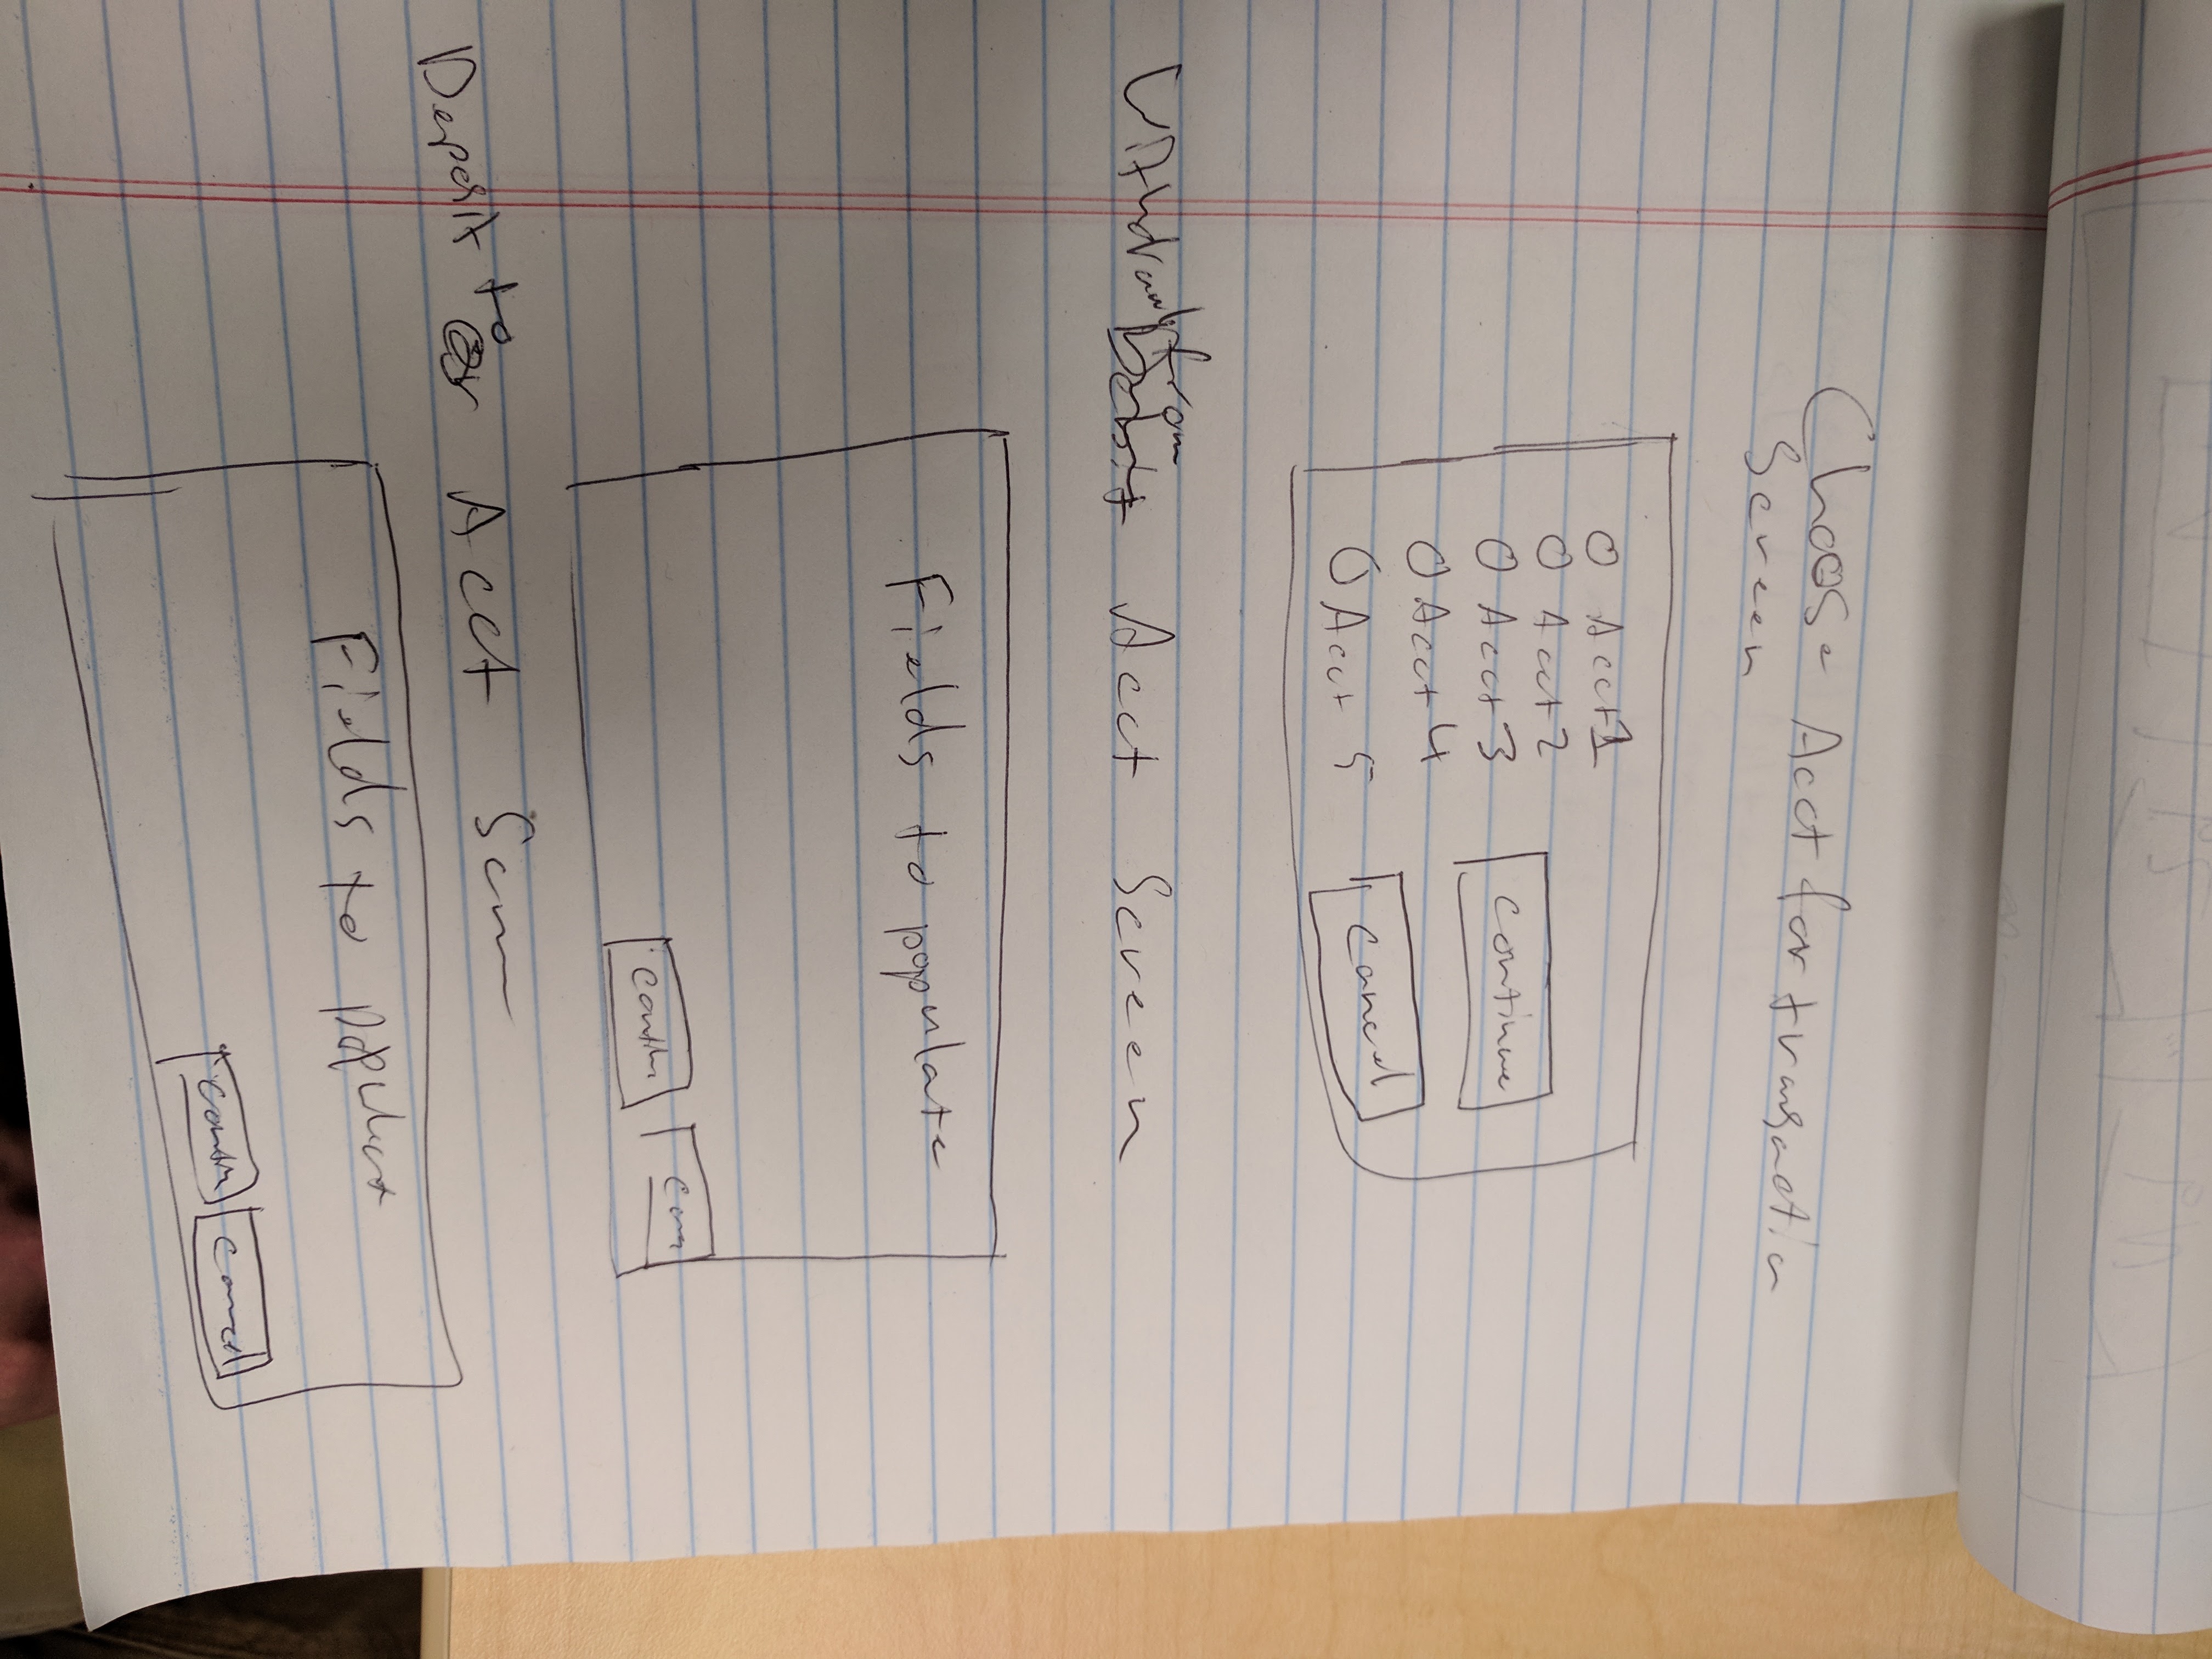 Choose Acct for transactin
Screen
O Acct 1
O Acct 2
O Acct 3
O Acct 4
O Acct 5
continue
cancel
Withdrawl from Acct Screen
Fields to populate
contin
can
Deposit to Acct Scrn
Fields to populat
contin
cancel